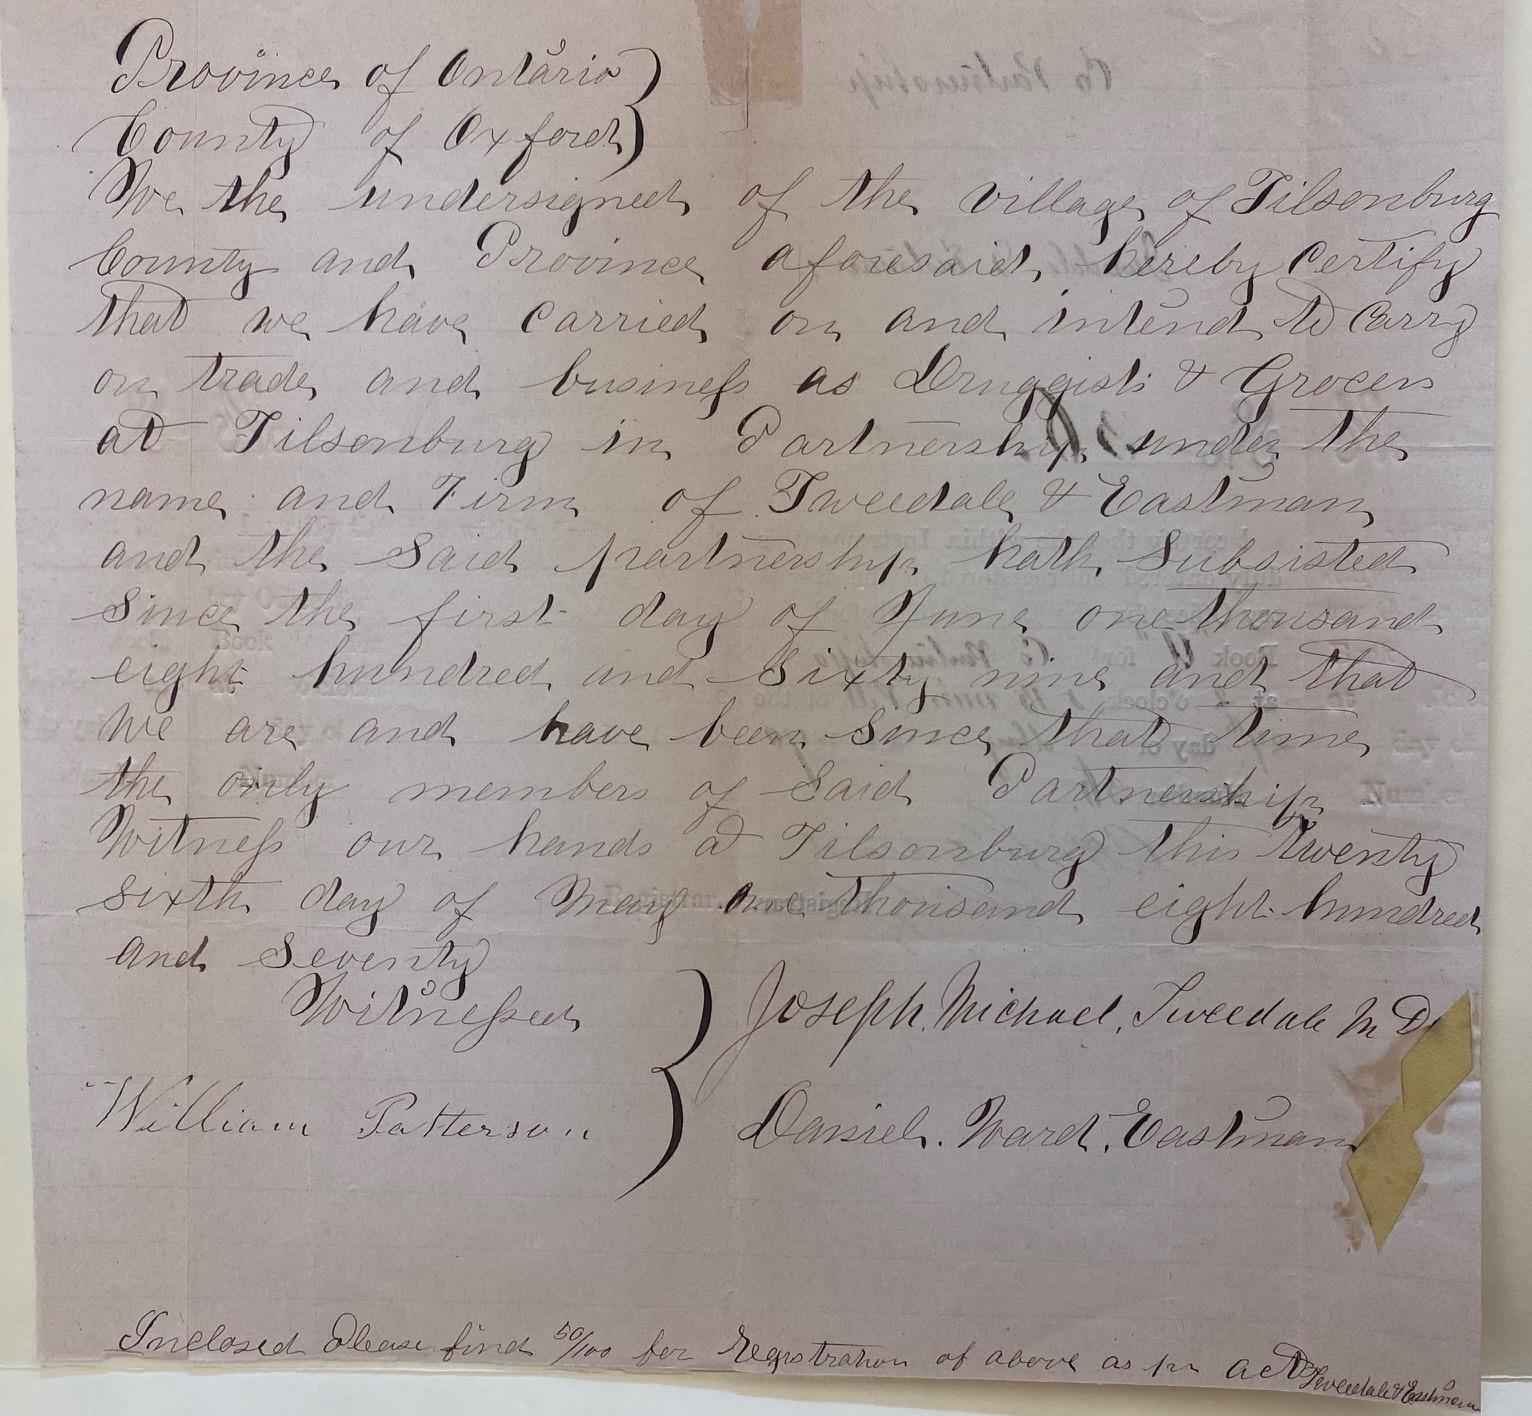 Province of Ontario
County of Oxford
We the undersigned of the village of Tilsonburg
County and Province aforesaid, hereby certify
that we have carried on and intend to carry
on trade and business as Druggists & Grocers
at Tilsonburg in Partnership under the
name and Firm of Tweedale & Eastman
and the said partnership hath subsisted
since the first day of June one thousand
eight hundred and sixty nine and that
we are and have been since that time
the only members of said Partnership
Witness our hands at Tilsonburg this twenty
sixth day of May one thousand eight hundred
and seventy
Witnessed
Joseph. Michael. Tweedale M D
William Patterson
Daniel. Ward. Eastman
Inclosed Please find 50/100 for Registration of above as per act Tweedale & Eastman